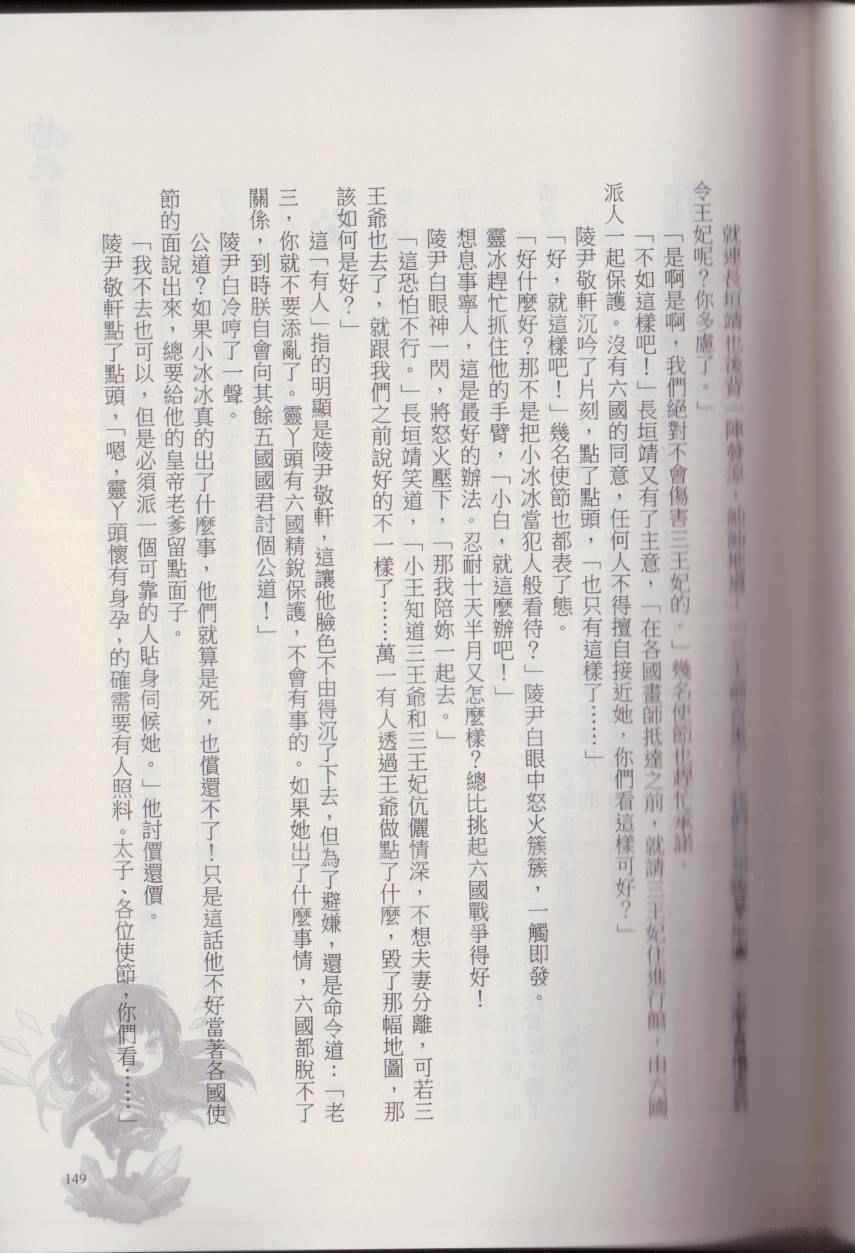 就連長垣靖也
令王妃呢？你多慮了。」
「是啊是啊，我們絕對不會傷害三王妃的。」幾名使節也趕忙承諾。
「不如這樣吧！」長垣靖又有了主意，「在各國畫師抵達之前，就請三王妃住進行館，由六國
派人一起保護。沒有六國的同意，任何人不得擅自接近她，你們看這樣可好？」
陵尹敬軒沉吟了片刻，點了點頭，「也只有這樣了……」
「好，就這樣吧！」幾名使節也都表了態。
「好什麼好？那不是把小冰冰當犯人般看待？」陵尹白眼中怒火簇簇，一觸即發。
靈冰趕忙抓住他的手臂，「小白，就這麼辦吧！」
想息事寧人，這是最好的辦法。忍耐十天半月又怎麼樣？總比挑起六國戰爭得好！
陵尹白眼神一閃，將怒火壓下，「那我陪妳一起去。」
「這恐怕不行。」長垣靖笑道，「小王知道三王爺和三王妃伉儷情深，不想夫妻分離，可若三
王爺也去了，就跟我們之前說好的不一樣了……萬一有人透過王爺做點了什麼，毀了那幅地圖，那
該如何是好？」
這「有人」指的明顯是陵尹敬軒，這讓他臉色不由得沉了下去，但為了避嫌，還是命令道：「老
三，你就不要添亂了。靈丫頭有六國精銳保護，不會有事的。如果她出了什麼事情，六國都脫不了
關係，到時朕自會向其餘五國國君討個公道！」
陵尹白冷哼了一聲。
公道？如果小冰冰真的出了什麼事，他們就算是死，也償還不了！只是這話他不好當著各國使
節的面說出來，總要給他的皇帝老爹留點面子。
「我不去也可以，但是必須派一個可靠的人貼身伺候她。」他討價還價。
陵尹敬軒點了點頭，「嗯，靈丫頭懷有身孕，的確需要有人照料。太子、各位使節，你們看……」
149